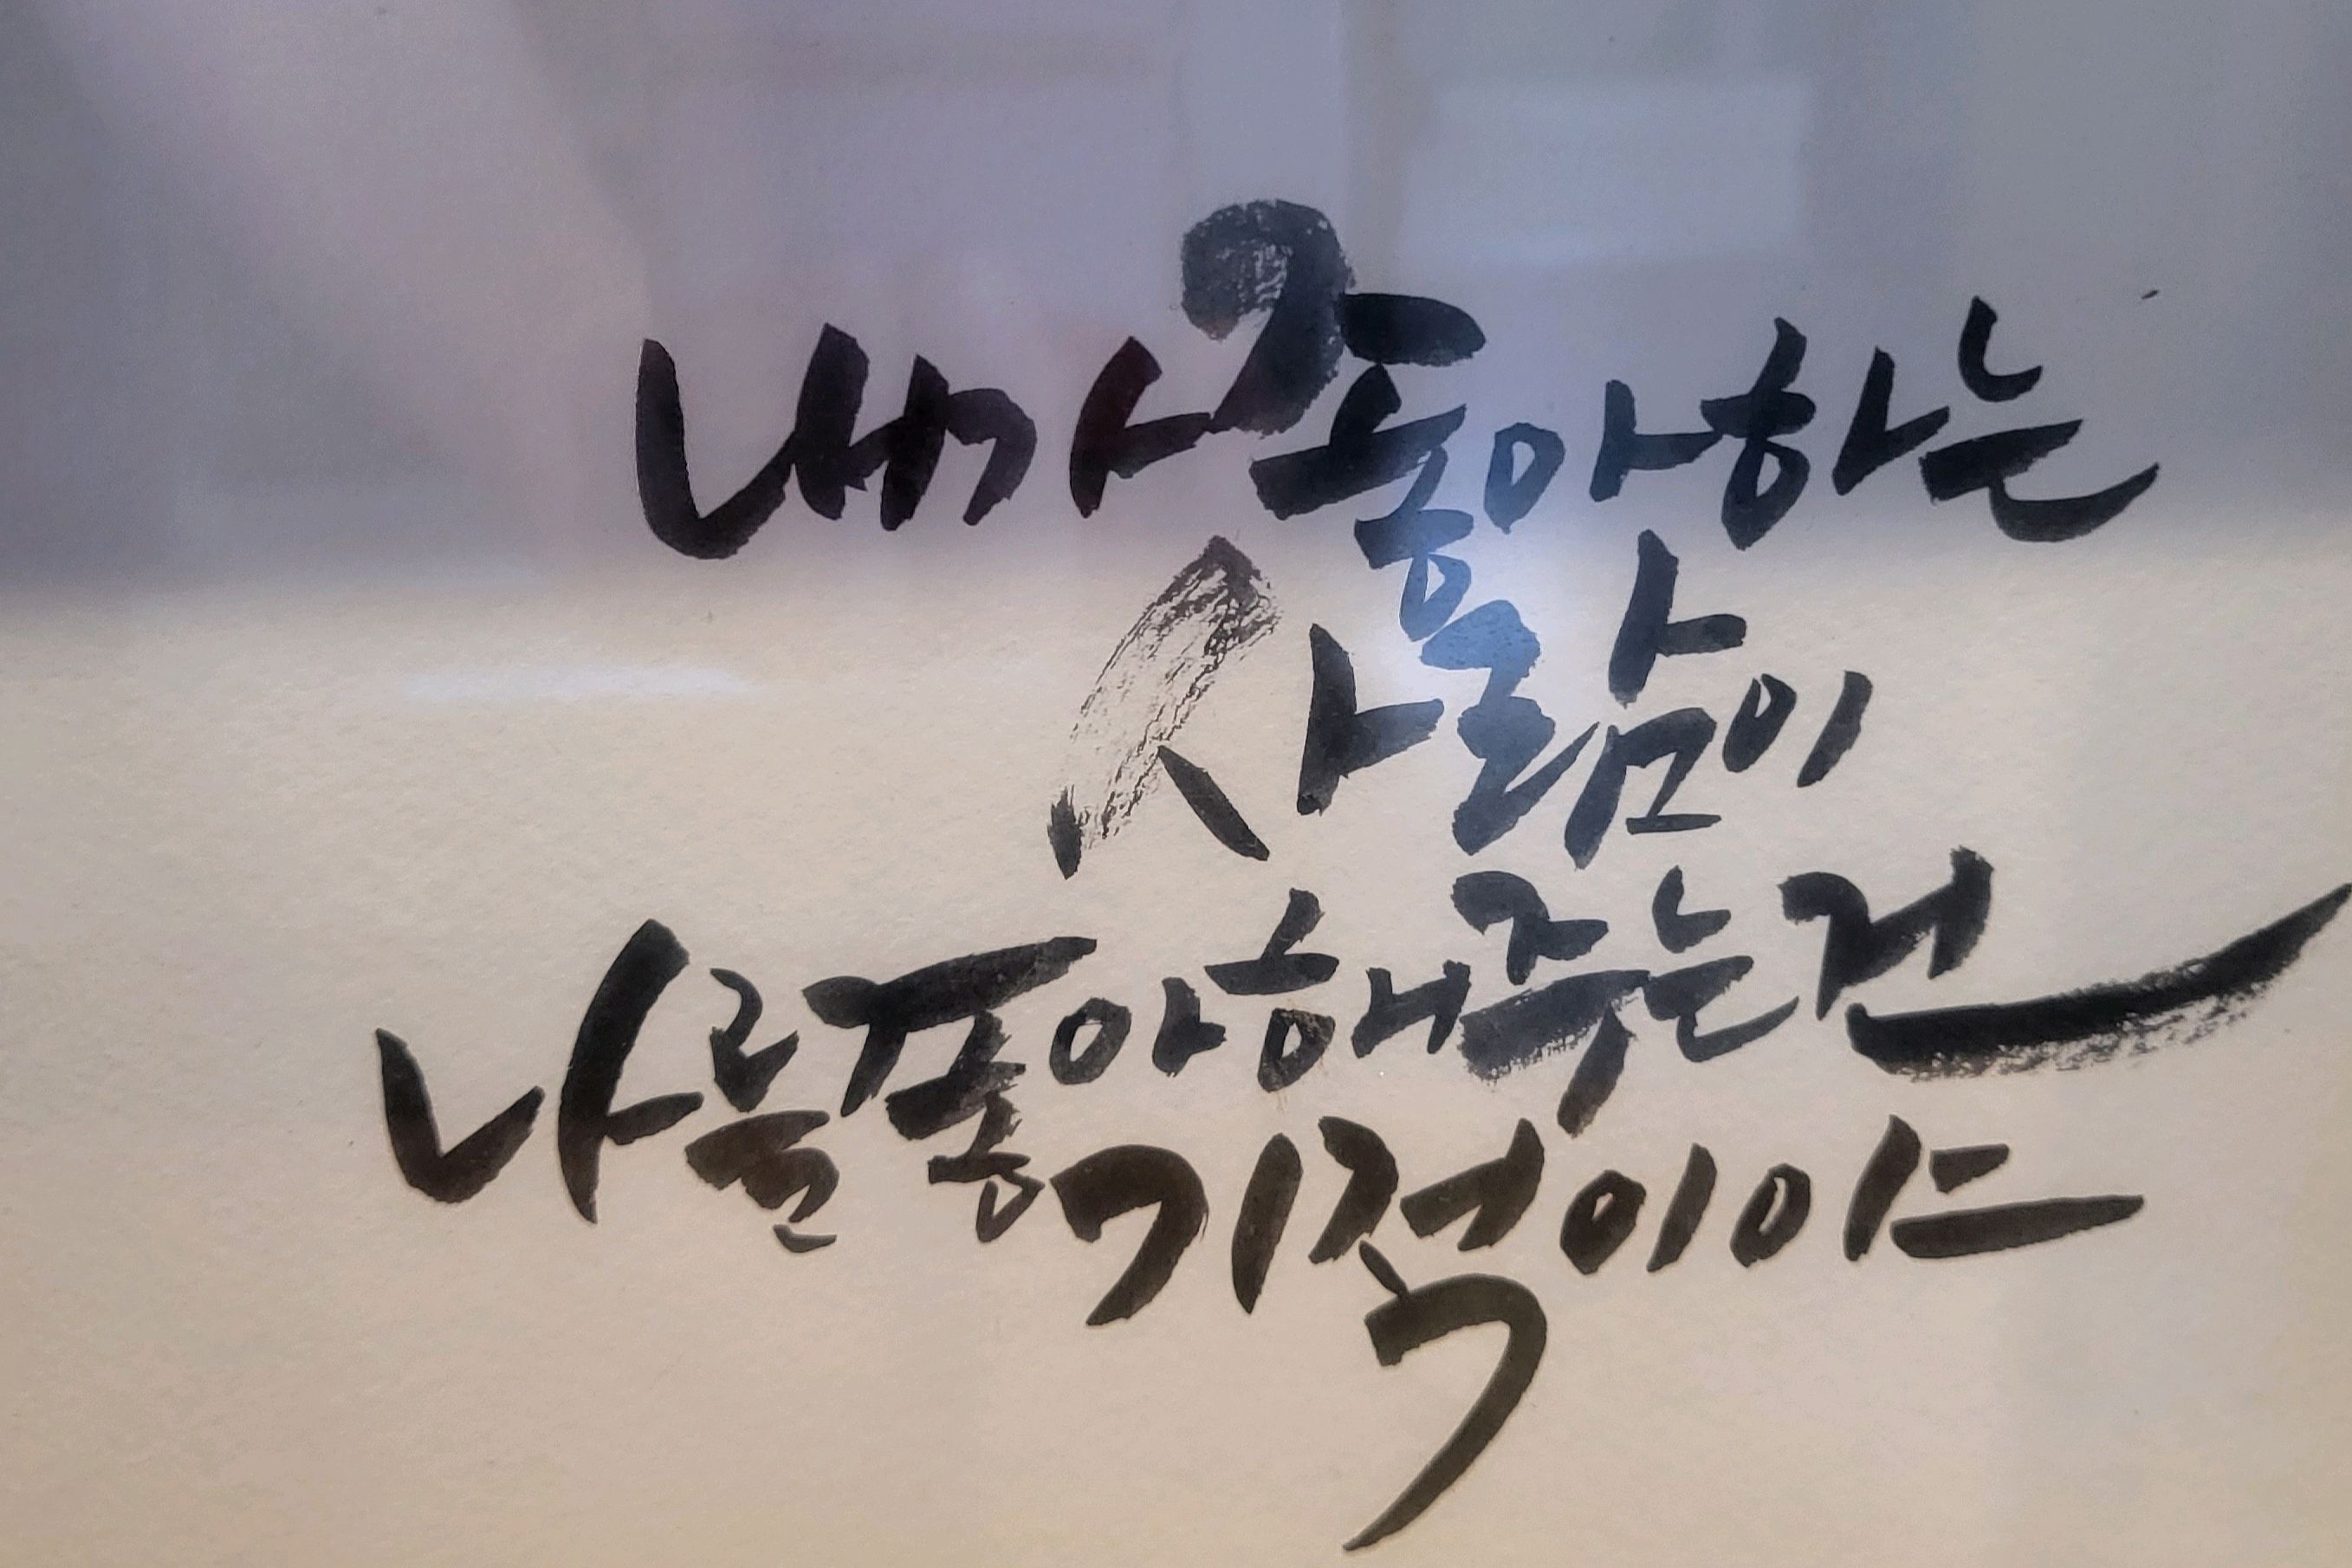 내가 좋아하는
사람이
나를 좋아해주는건
기적이야